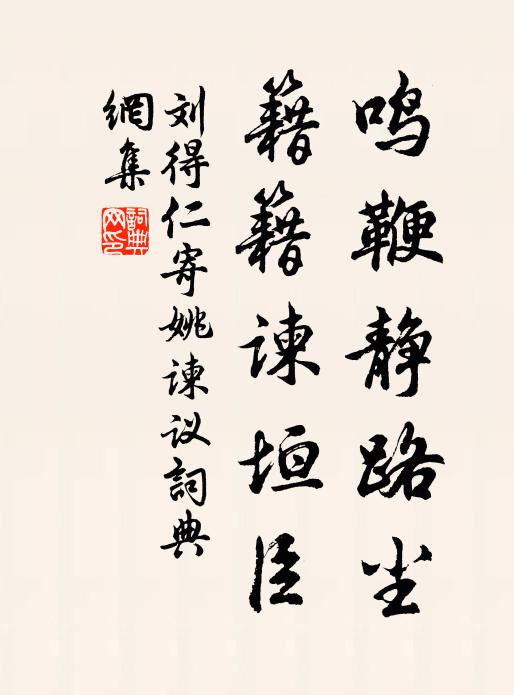 鸣鞭静路尘
籍籍谏垣臣
刘得仁寄姚谏议詞典
網集
詞典网印